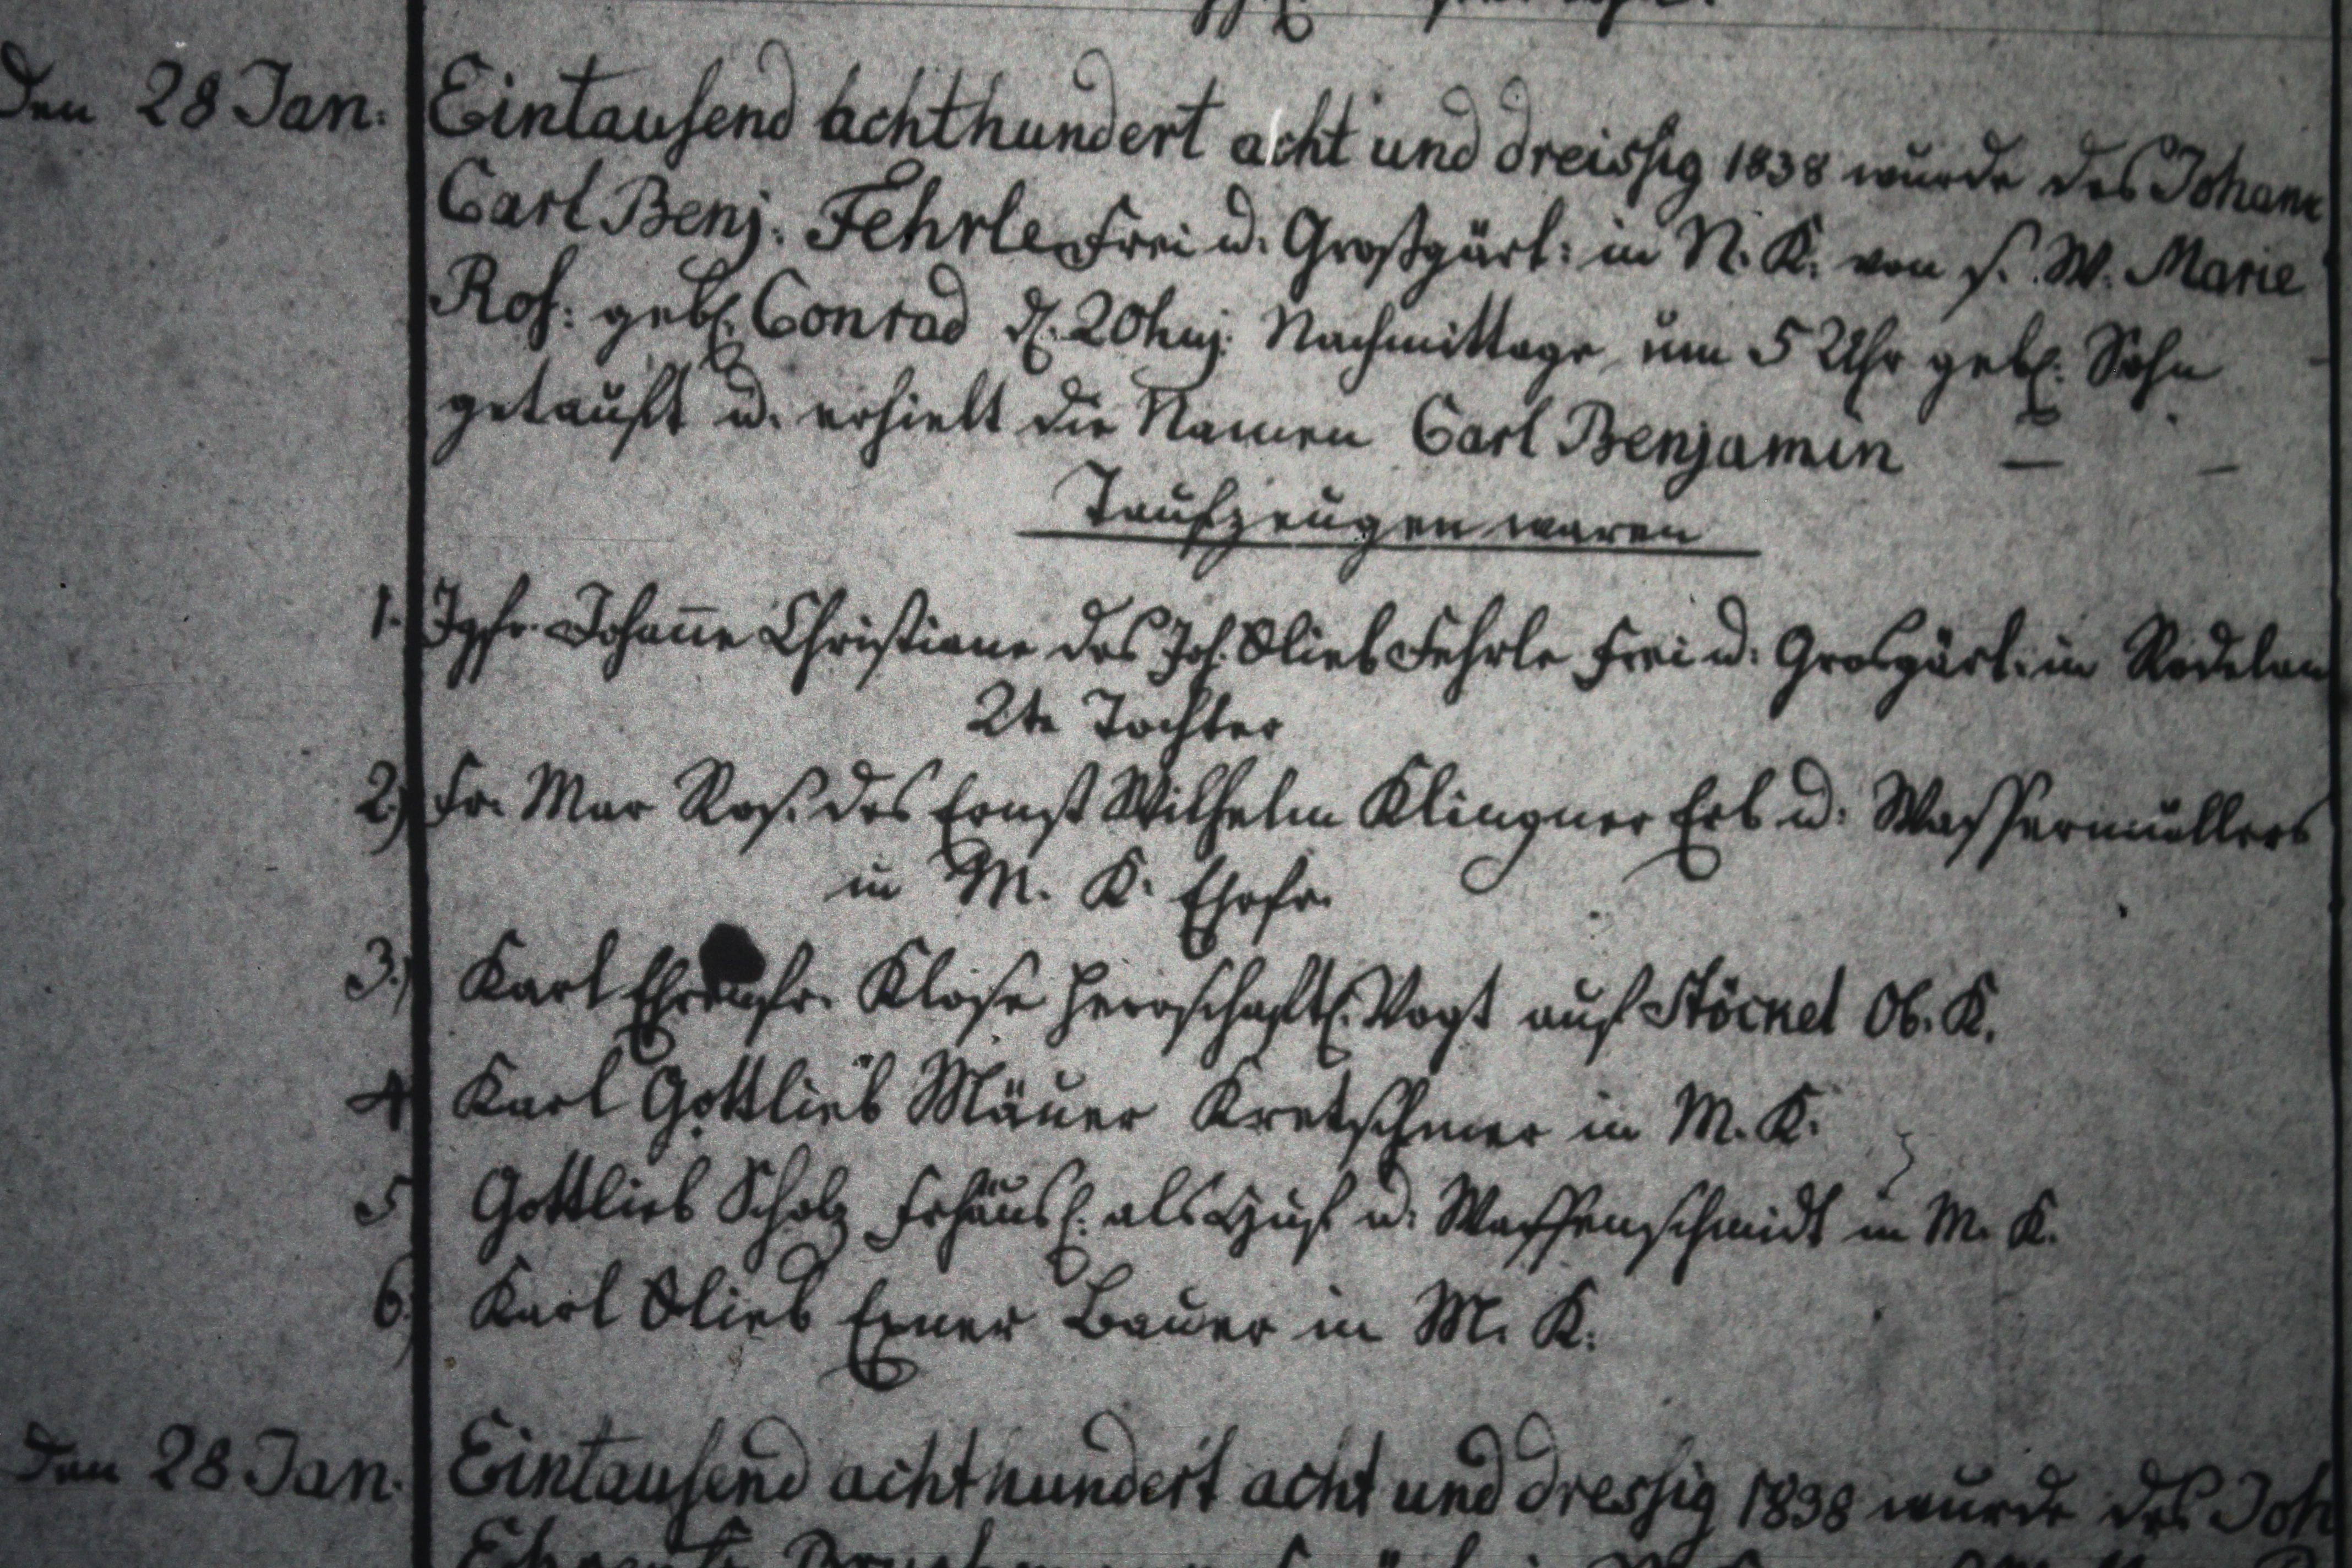 Den 28 Jan: Eintausend achthundert acht und dreissig 1838 wurde des Johann
Carl Benj. Fehrle Frei u. Großgärt: in N. K. von s. W. Marie
Ros: geb. Conrad d. 20 huj. Nachmittags um 5 Uhr geb. Sohn
getauft u. erhielt die Namen Carl Benjamin — —
Taufzeugen waren
1. Jgfr. Johanne Christiane des Joh. Glieb Fehrle Frei u: Grosgärt: in Rodelan
2te Tochter
2.) Fr. Mar Ros. des Ernst Wilhelm Klingner Erb u: Wassermüllers
in M. K. Ehefr.
3.) Karl Ehrenfr. Klose herrschaftl. Vogt auf Stöckel Ob. K.
4 Karl Gottlieb Mäuer Kretschmer in M. K.
5 Gottlieb Scholz Frhäusl. als Huf u: Waffenschmidt in M. K.
6.) Karl Glieb Exner Bauer in M. K.
Den 28 Jan. Eintausend achthundert acht und dressig 1838 wurde des Joh